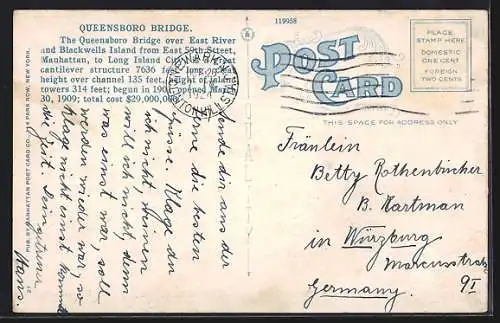 QUEENSBORO BRIDGE.
The Queensboro Bridge over East River
and Blackwells Island from East 59th Street,
Manhattan, to Long Island City,
cantilever structure 7636 feet long, clear
height over channel 135 feet, height of
towers 314 feet; begun in 1901, opened March
30, 1909; total cost $29,000,000.
PUB. BY MANHATTAN POST CARD CO. PARK ROW, NEW YORK.
119958
POST
CARD
THIS SPACE FOR ADDRESS ONLY
PLACE
STAMP HERE
DOMESTIC
ONE CENT
FOREIGN
TWO CENTS
Sende dir aus der
Ferne die besten
Grüsse. Klage an
ich nicht, weinen
will ich nicht, denn
was einst war, soll
werden wieder war, so
klage nicht einst kommt
die Zeit. Dein getreuer
Hans.
Fräulein
Betty Rothenbücher
B. Hartman
in Würzburg
Marcusstraße
9 I
Germany.